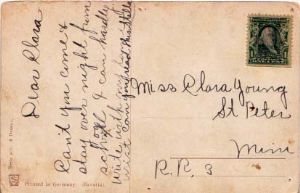 Dear Clara
Cant you come &
stay over night from
school I can hardly
write with
Miss Clara Young
St Peter
Minn
R.R. 3
Printed in Germany. (Bavaria)